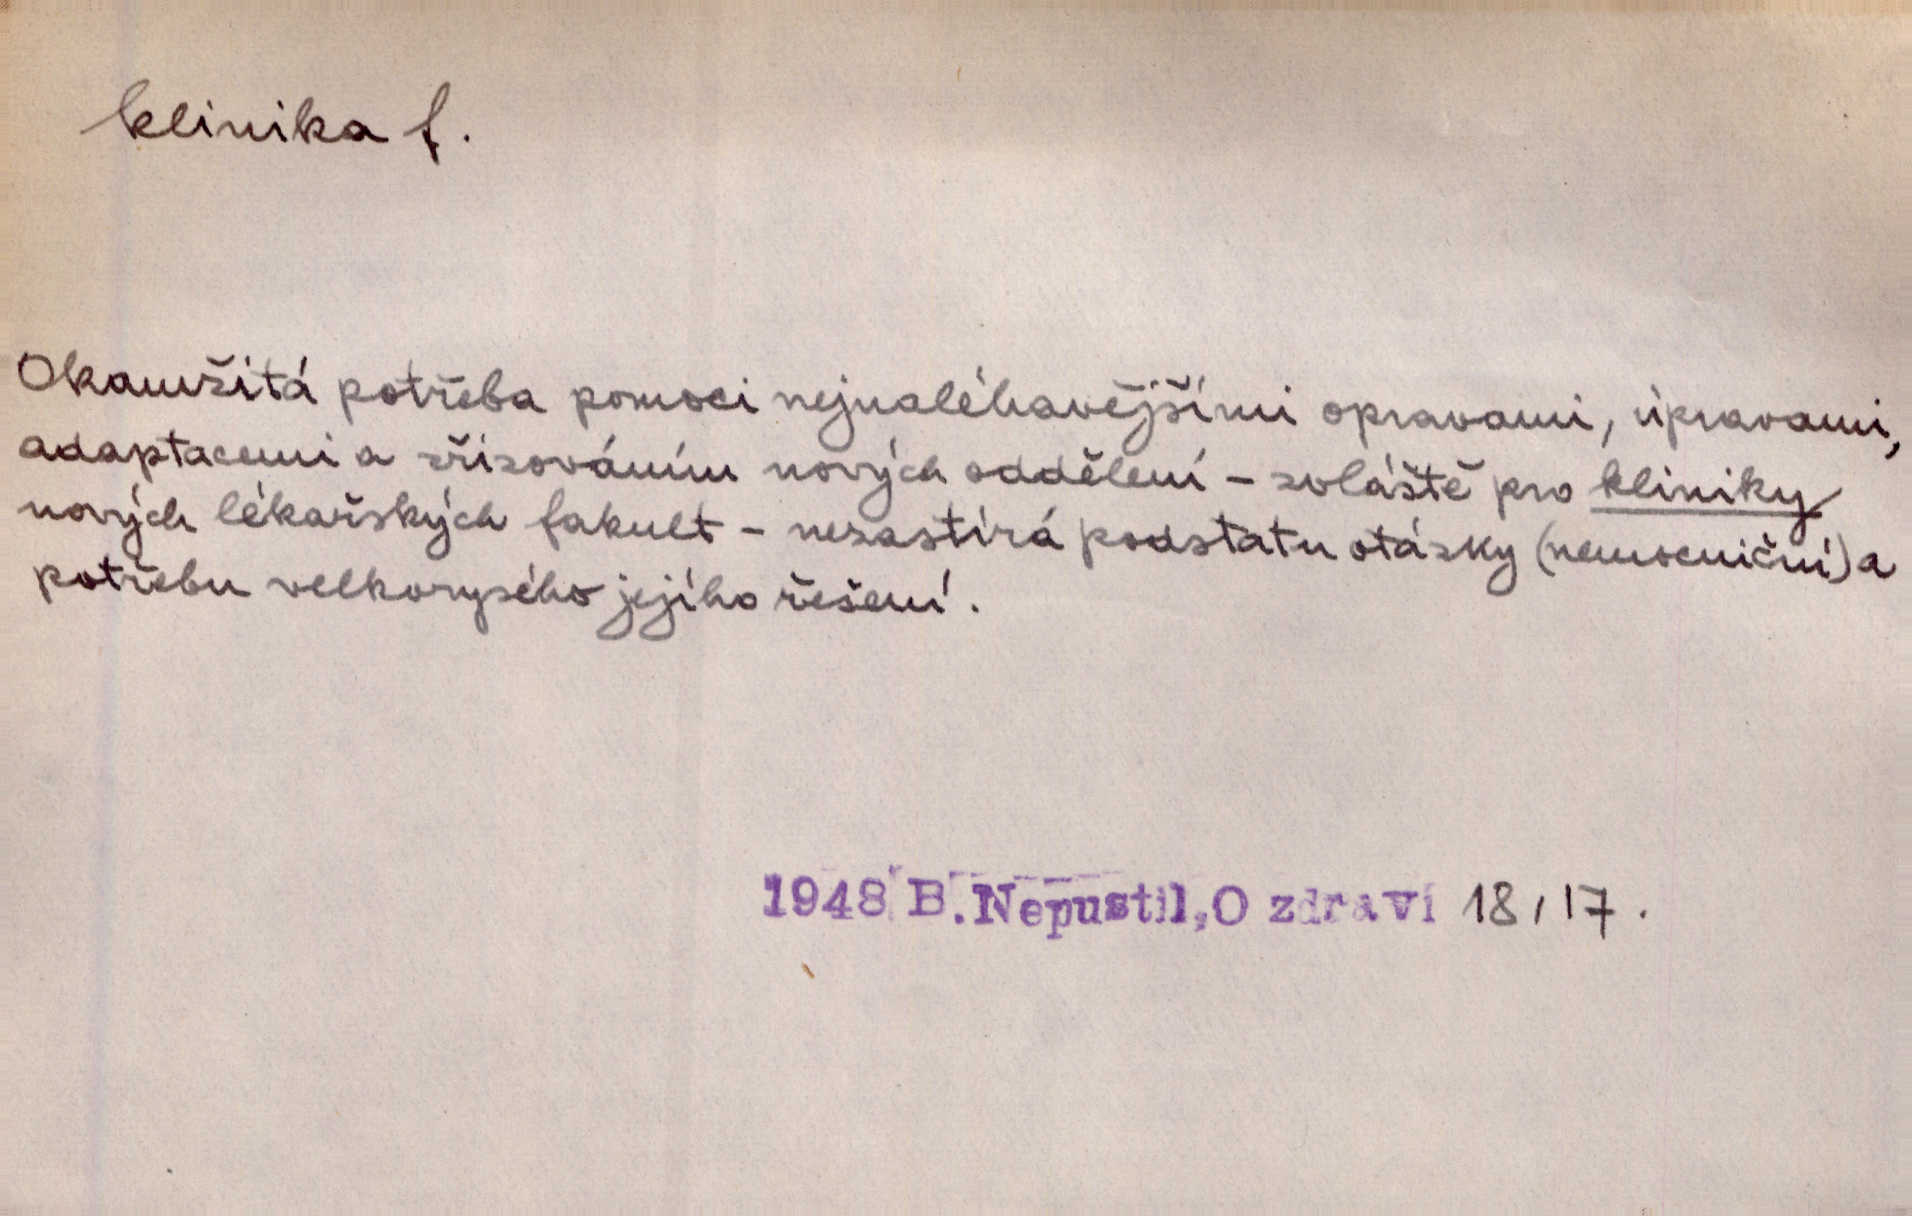 klinika f.
Okamžitá potřeba pomoci nejnaléhavějšími opravami, úpravami,
adaptacemi a zřizováním nových oddělení - zvláště pro kliniky
nových lékařských fakult - nezastírá podstatu otázky (nemocniční) a
potřebu velkorysého jejího řešení.
1948 B. Nepustil, O zdraví 18, 17.